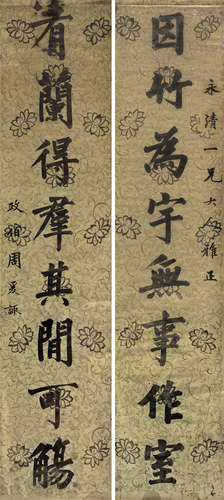 永清一兄大人雅正
因竹為宇無事作室
看蘭得羣其閒可觴
周